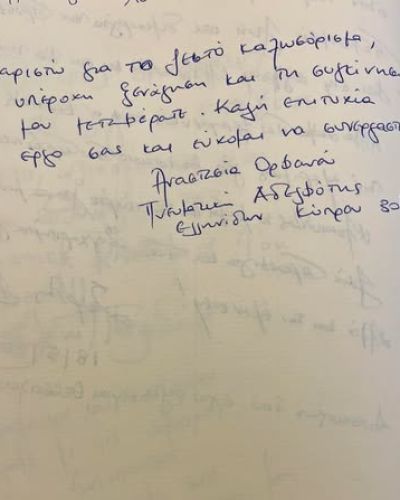 αριστώ για το ζεστό καλωσόρισμα,
υπέροχη ξενάγηση και τη συγκίνηση
μου μεταφέρατε. Καλή επιτυχία
έργο σας και εύχομαι να συνεργαστ
Αναστασία Ορφανού
Πνευματική Αδελφότης
Ελληνίδων Κύπρου